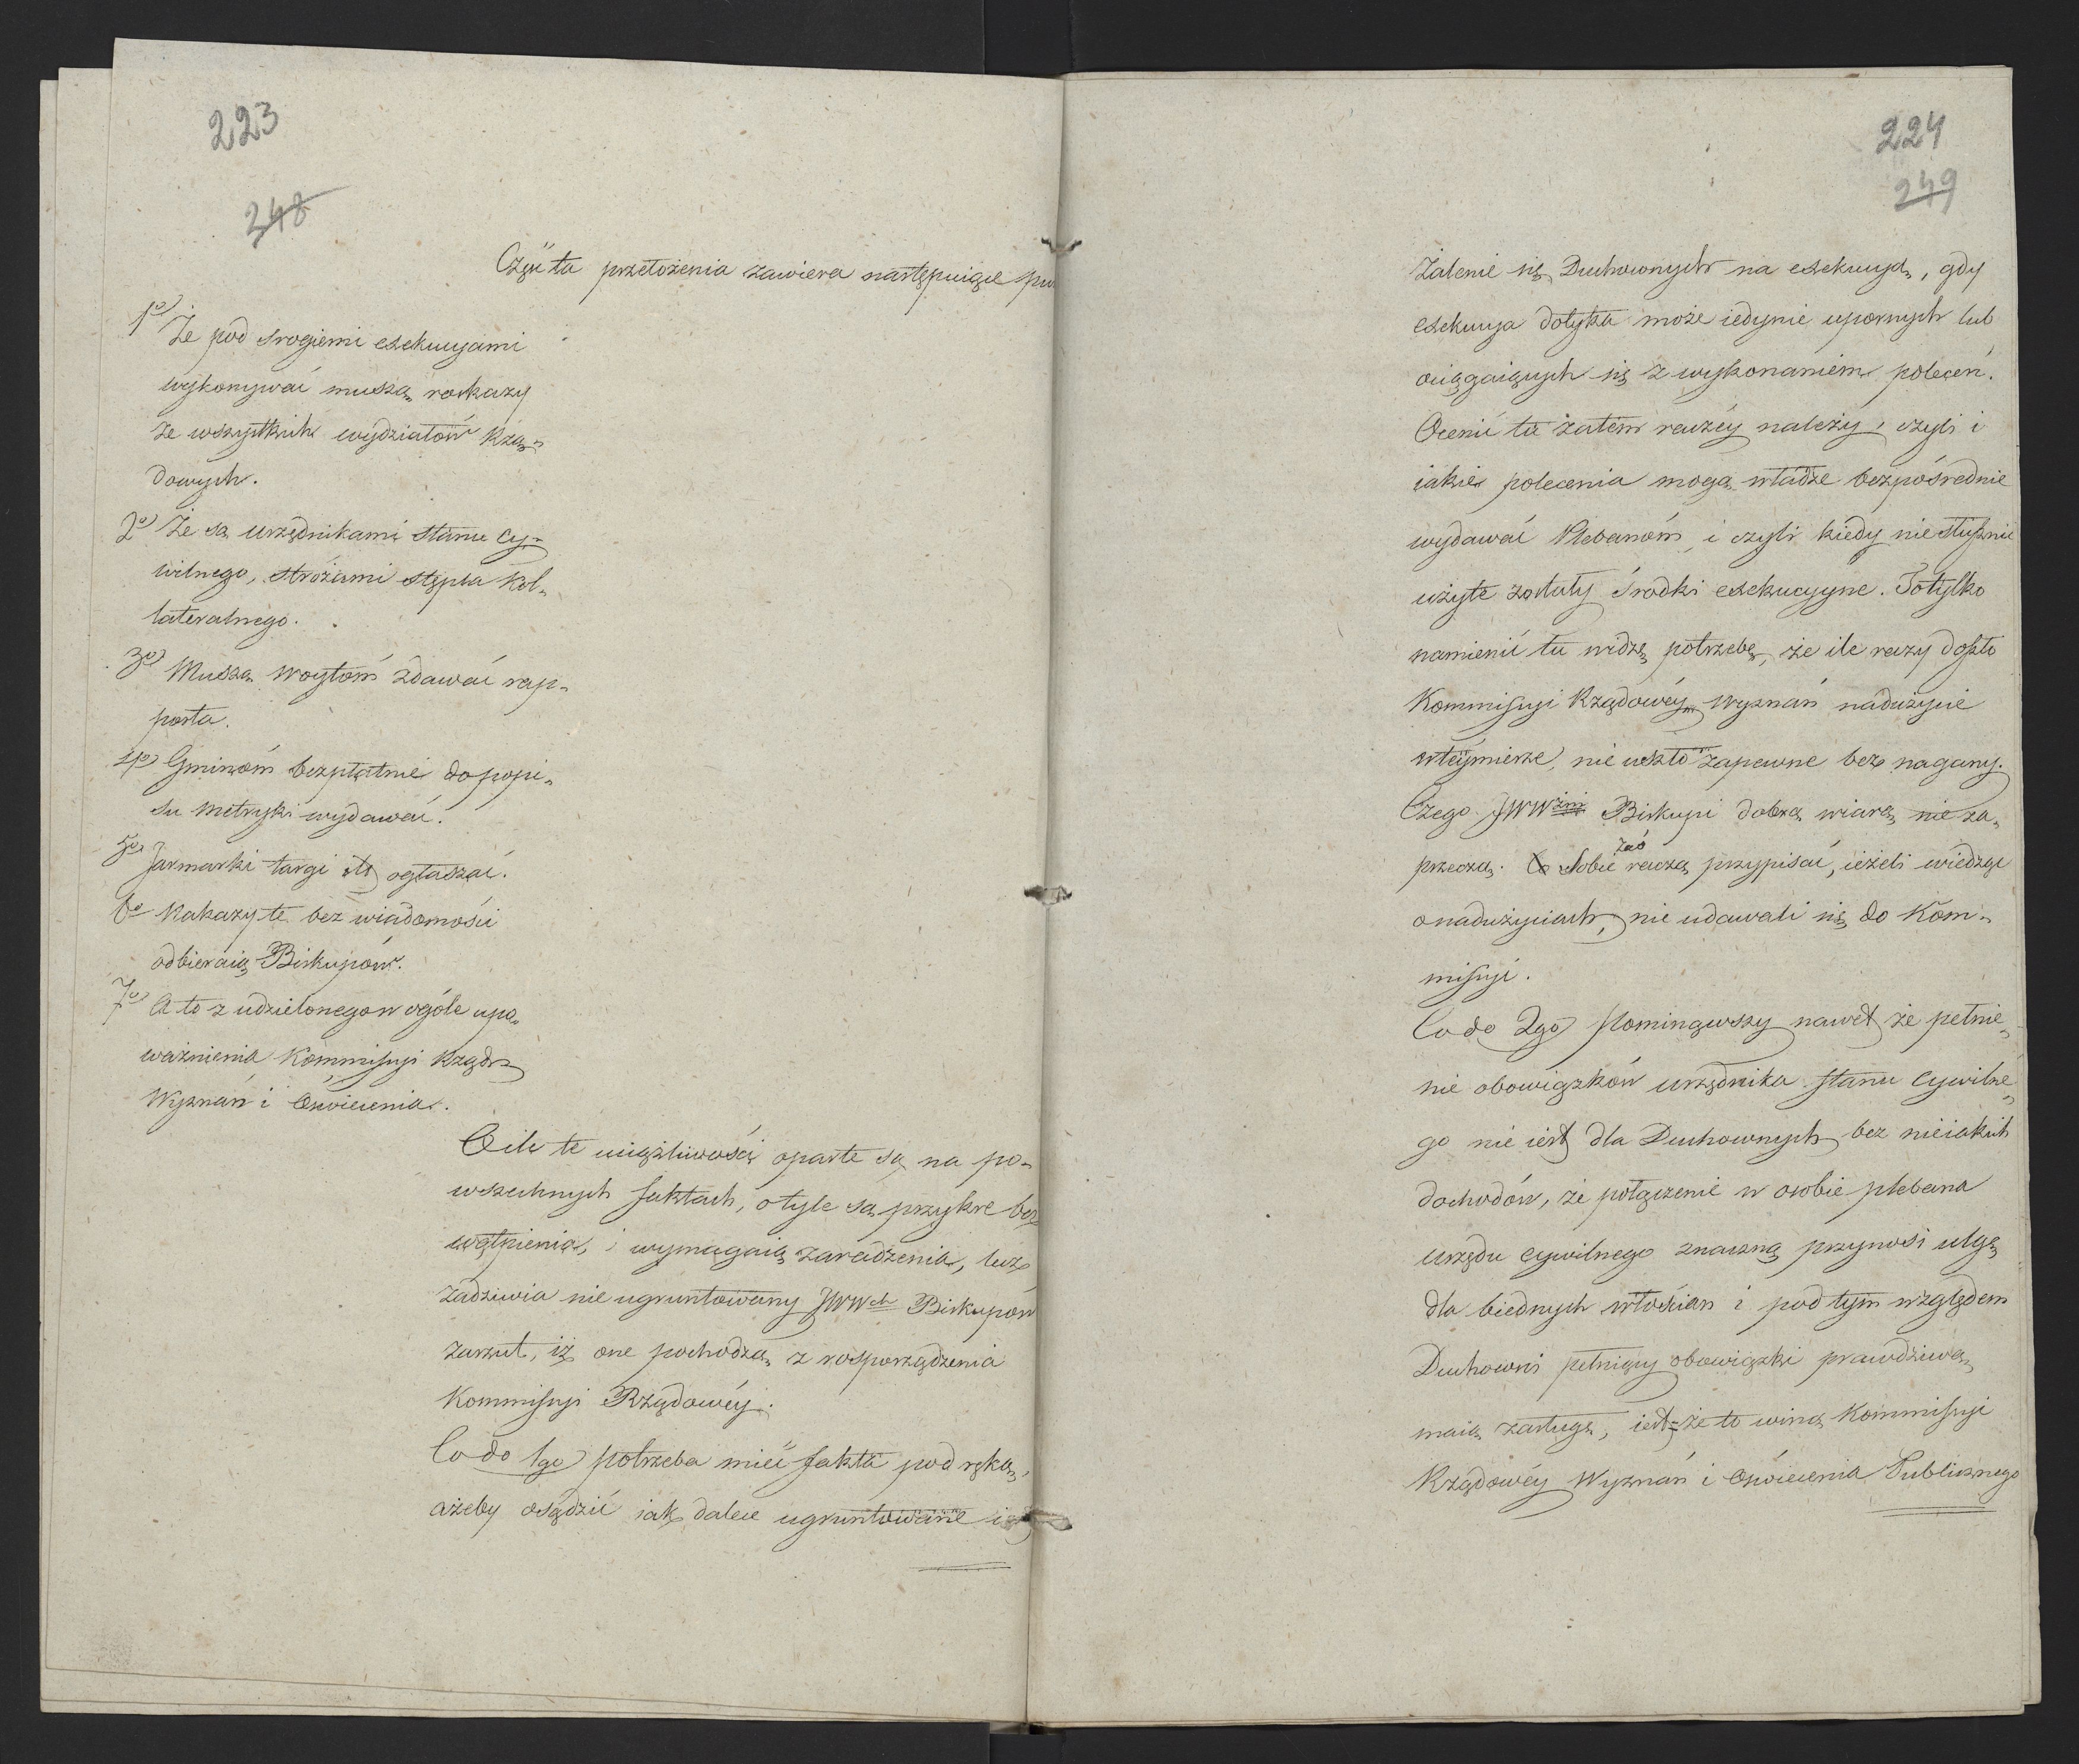 223
248
Część ta przełożenia zawiera następuiące
1o) Że pod srogiemi exekucyami
wykonywać muszą roskazy
ze wszystkich wydziałów Rzą-
dowych.
2o) Że są urzędnikami stanu Cy-
wilnego, stróżami stępla Kol-
lateralnego.
3o) Muszą Woytóm zdawać rap-
porta.
4o) Gminóm bezpłatnie do popi-
su metryki wydawać.
5o) Jarmarki targi etc ogłaszać.
6o Nakazy te bez wiadomości
odbieraią Biskupów.
7o) A to z udzielonego w ogóle upo-
ważnienia Kommissyi Rządo
Wyznań i Oświecenia.
O ile te uciążliwości oparte są na po-
wszechnych faktach, o tyle są przykre bez
wątpienia, i wymagaią zaradzenia, lecz
zadziwia nie ugruntowany JWWch Biskupów
zarzut, iż one pochodzą z rosporządzenia
Kommissyi Rządowéy.
Co do 1go) potrzeba mieć fakta pod ręką,
ażeby osądzić iak dalece ugruntowane iest
224
249
Żalenie się Duchownych na exekucyą, gdy
exekucya dotyka może iedynie upornych lub
ociągaiących się z wykonaniem poleceń.
Ocenić tu zatém raczéy należy, czyli i
iakie polecenia mogą władze bezpośrednie
wydawać Plebanóm, i czyli kiedy nie słusznie
użyte zostały środki exekucyyne. To tylko
namienić tu widzę potrzebę, że ile razy doszło
Kommissyi Rządowéy Wyznań nadużycie
w téymierze, nie uszło zapewne bez nagany.
Czego JWWżni Biskupi dobrą wiarą nie za-
przeczą. Co Sobie zaś raczą przypisać, ieżeli wiedząc
o nadużyciach, nie udawali się do Kom-
missyi.
Co do 2go) Pominąwszy nawet że pełnie-
nie obowiązków urzędnika stanu Cywilne-
go nie iest dla Duchownych bez nieiakich
dochodów, że połączenie w osobie plebana
urzędu cywilnego znaczną przynosi ulgę
dla biednych włościan i pod tym względem
Duchowni pełniący obowiązki prawdziwą
maią zasługę, iest-że to winą Kommissyi
Rządowéy Wyznań i Oświecenia Publicznego